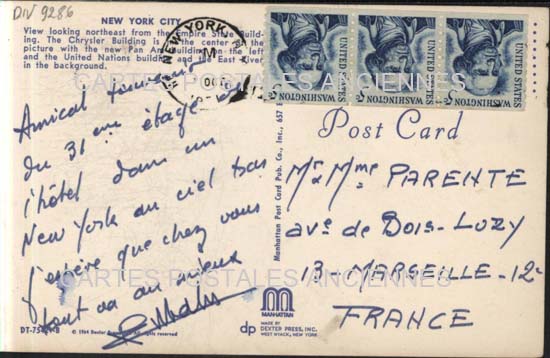 DIV 9286
NEW YORK CITY
View looking northeast from the Empire State Build-
ing. The Chrysler Building is in the center of the
picture with the new Pan Am building on the left
and the United Nations building and the East River
in the background.
NEW YORK
M
OCT
UNITED STATES
WASHINGTON
5c
UNITED STATES
WASHINGTON
5c
UNITED STATES
WASHINGTON
5c
CARTES POSTALES ANCIENNES
Amical
du 31ème étage de
l'hôtel dans un
New York au ciel bas
j'espère que chez vous
tout va au mieux
Post Card
Mr Mme PARENTE
ave de BOIS-LUZY
13-MARSEILLE-12e
FRANCE
CARTES POSTALES ANCIENNES
Manhattan Post Card Pub. Co., Inc., 657
DT-75
© 1964 Dexter
rights reserved
MANHATTAN
dp
MADE BY
DEXTER PRESS, INC.
WEST NYACK, NEW YORK